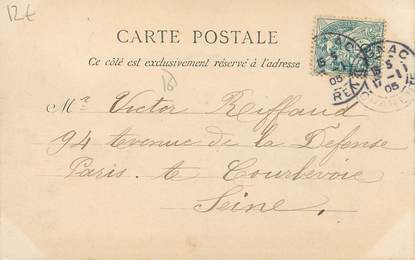 12€
CARTE POSTALE
Ce côté est exclusivement réservé à l'adresse
18
Mr Victor Riffaud
94 Avenue de la Défense
Paris. te Courbevoie
Seine.